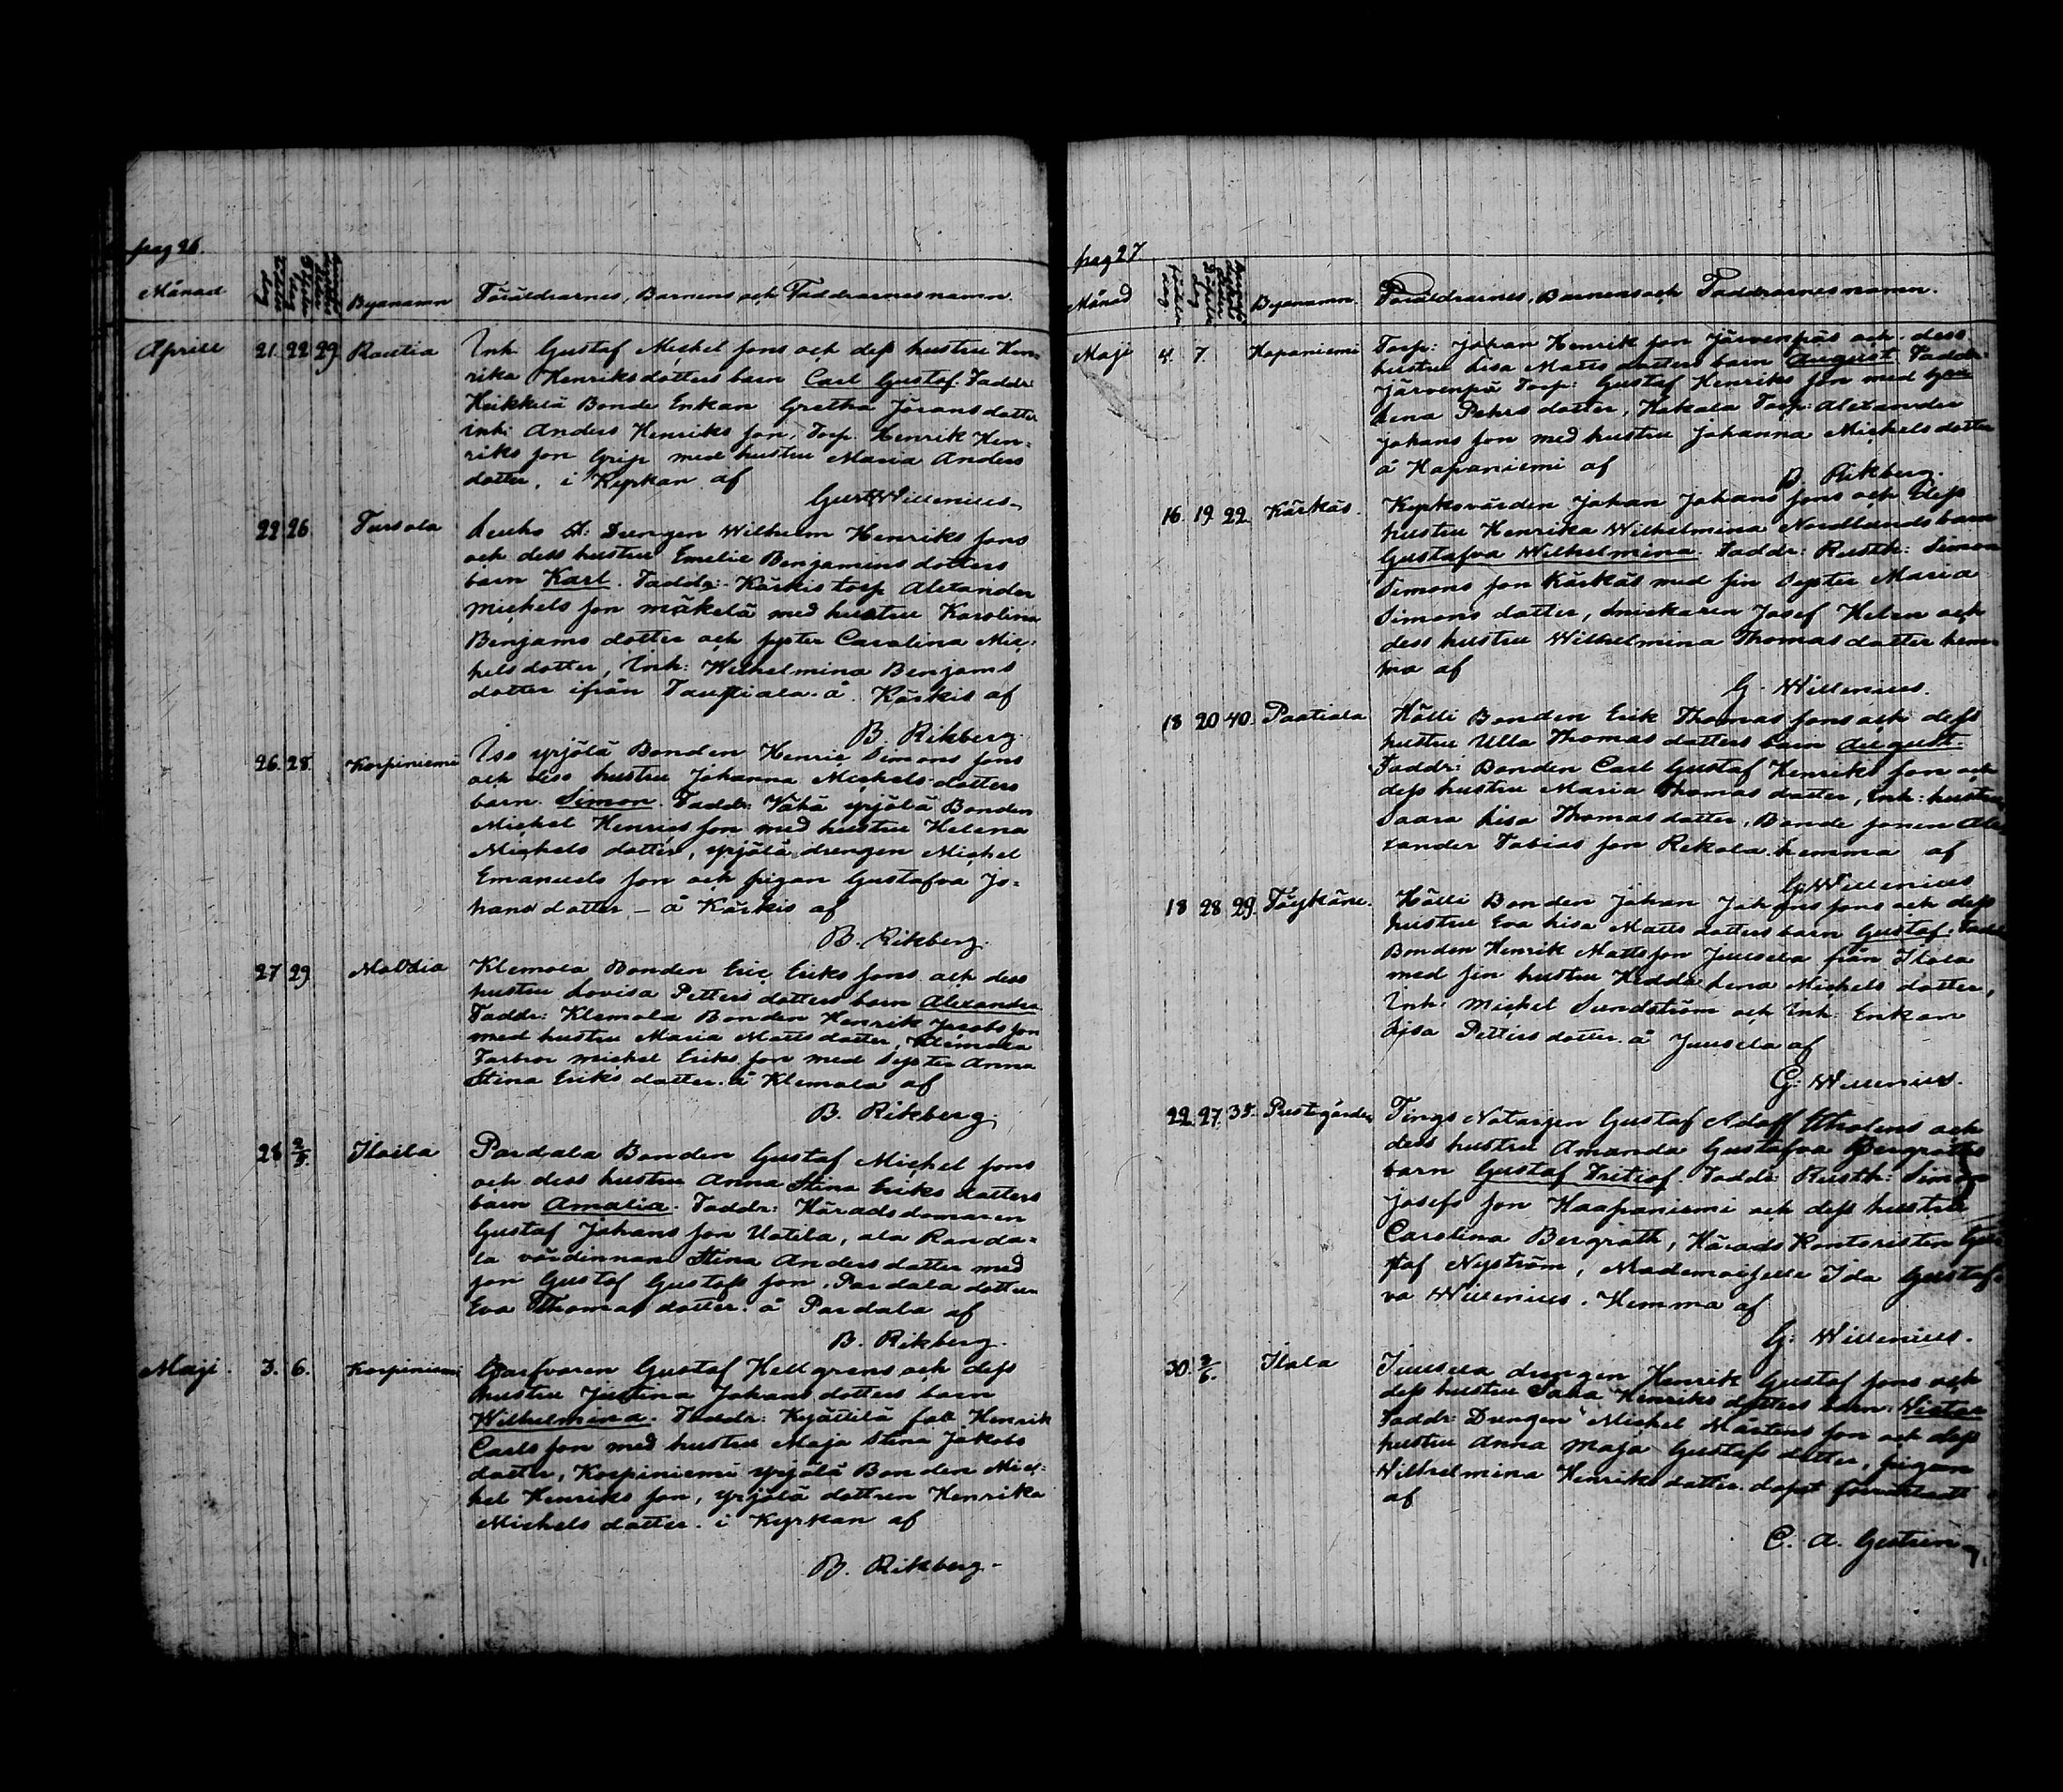 pag 26.
Månad
Byanamn
Föräldrarnes, Barnens och Faddrarnes namn.
Aprill 21. 22 29. Rautia
Inh: Gustaf Michel sons och dess hustru Hen-
rika Henriksdotters barn Carl Gustaf. Faddr:
Heikkelä Bonde Enkan Gretha Jöransdotter
inh: Anders Henriks son, Torp. Henrik Hen-
riks son Grip med hustru Maria Anders
dotter, i Kyrkan af
Gust. Willenius
22 26 Tursola
Drengen Wilhelm Henriks sons
och dess hustru Emelie Benjamins dotters
barn Karl. Faddr: Kärkis torp Alexander
Michels son mäkelä med hustru Karolina
Benjams dotter och syster Carolina Mic-
helsdotter, Inh: Wilhelmina Benjams
dotter ifrån å Kärkis af
B. Rikberg.
26. 28. Korpiniemi
Iso yrjölä Bonden Henric Simons sons
och dess hustru Johanna Michels dotters
barn Simon. Faddr: Vähä yrjölä Bonden
Michel Henrics son med hustru Helena
Michels dotter, yrjölä drengen Michel
Emanuels son och pigan Gustafva Jo-
hans dotter – å Kärkis af
B. Rikberg.
27 29.
Klemola Bonden Eric Eriks sons och dess
hustru Lovisa Petters dotters barn Alexandra
Faddr: Klemola Bonden Henrik Jacobs son
med hustru Maria Matts dotter, Klemola
Farbror Michel Eriks son med Syster Anna
Stina Eriks dotter. å Klemola af
B. Rikberg.
28 2/5. Iloila
Pardala Bonden Gustaf Michel sons
och dess hustru Anna Stina Eriks dotters
barn Amalia. Faddr: Häradsdomaren
Gustaf Johans son Uotila, ala Randa-
la värdinnan Stina Anders dotter med
son Gustaf Gustafs son. Pardala dottern
Eva Thomas dotter. å Pardala af
B. Rikberg.
Maji. 3. 6. Korpiniemi
Garfvaren Gustaf Hellgrens och dess
hustru Justina Johans dotters barn
Wilhelmina. Faddr: Kyöttilä Henrik
Carls son med hustru Maja Stina Jakobs
dotter, Korpiniemi yrjölä Bonden Mic-
hel Henriks son, yrjölä dottren Henrika
Michels dotter. i Kyrkan af
B. Rikberg.
pag 27
Månad
Byanamn.
Föräldrarnes, Barnens och Faddrarnes namn.
Maji 4. 7. Hapaniemi
Torp: Johan Henrik son Järvenpäs och dess
hustru Lisa Matts dotters barn August Faddr:
Järvenpä Torp: Gustaf Henriks son med
Lena Pehrs dotter, Hakala Torp: Alexander
Johans son med hustru Johanna Michels dotter
å Hapaniemi af
B. Rikberg.
16. 19. 22 Kärkäs.
Kyrkovärden Johan Johans sons och Dess
hustru Henrika Wilhelmina Nordlunds barn
Gustafva Wilhelmina. Faddr: Rusth: Simon
Simons son Kärkäs med sin Syster Maria
Simons dotter, Snickaren Josef Helen och
dess hustru Wilhelmina Thomas dotter hem-
ma af
G. Willenius.
18 20 40. Paatiala
Hölli Bonden Erik Thomas sons och dess
hustru Ulla Thomas dotters barn August.
Faddr: Bonden Carl Gustaf Henriks son och
dess hustru Maria Thomas dotter, Inh: hustru
Saara Lisa Thomas dotter, Bonde sonen Ale-
xander Tobias son Rekola. hemma af
G. Willenius
18 28 29.
Hölli Bonden Johan Johans sons och dess
hustru Eva Lisa Matts dotters barn Gustaf. Faddr
Bonden Henrik Mattsson Juusela från Ilola
med sin hustru Hedda Lena Michels dotter,
Inh: Michel Sundström och Inh: Enkan
Lisa Petters dotter. å Juusela af
G. Willenius.
22. 27. 35. Prestgården
Tings Notarjen Gustaf Adolf och
dess hustru Amanda Gustafva Bergroths
barn Gustaf Fritiof Faddr: Rusth: Simon
Josefs son Haapaniemi och dess hustru
Carolina Bergroth, Härads Kontoristen Gus-
staf Nyström, Mademoiselle Ida Gustaf-
va Willenius. Hemma af
G. Willenius.
30. 2/6. Ilola
Juusela drengen Henrik Gustaf sons och
dess hustru Sara Henriks dotters barn Victor
Faddr: Drengen Michel Mårtens son och dess
hustru Anna Maja Gustafs dotter, pigan
Wilhelmina Henriks dotter. döpt
af
C. A. Gestrin